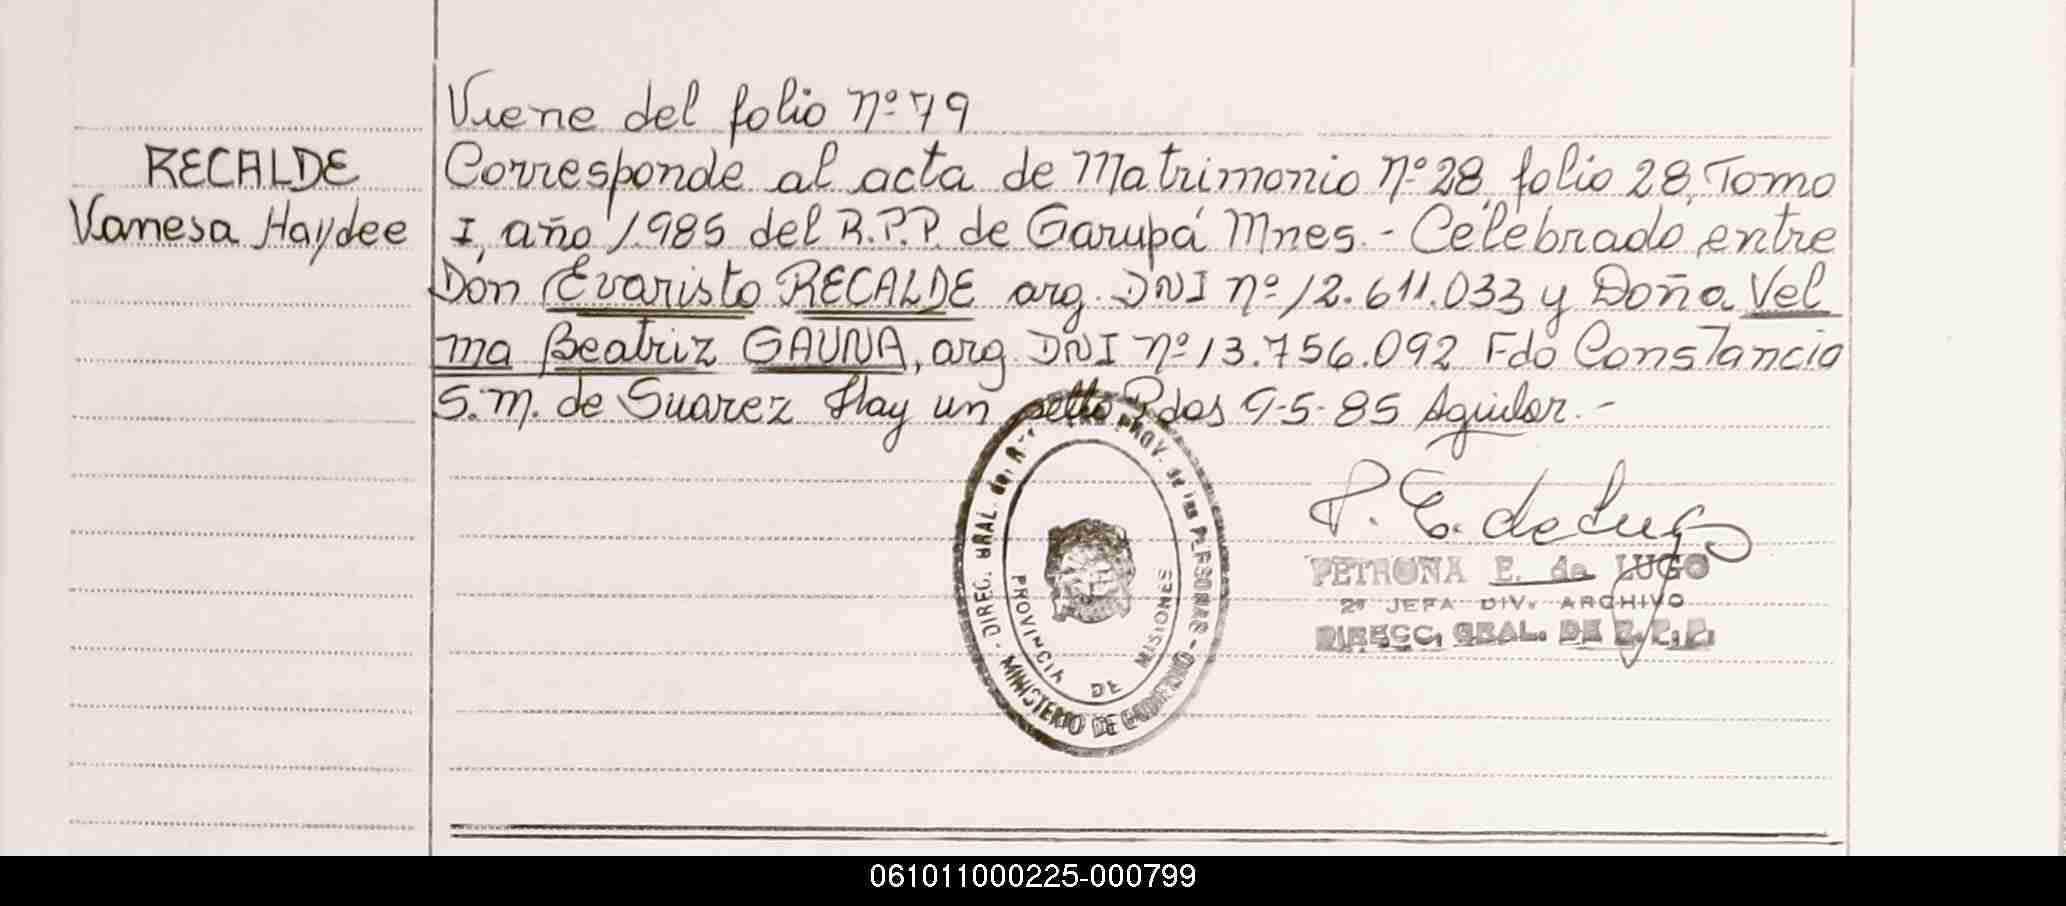 Viene del folio nº 79
RECALDE
Vanesa Haydee
Corresponde al acta de Matrimonio nº 28, folio 28, Tomo
I, año 1985 del R.P.P. de Garupá Mnes.- Celebrado entre
Don Evaristo RECALDE arg. DNI nº 12.611.033 y Doña Vel
ma Beatriz GAUNA, arg. DNI nº 13.756.092 Fdo Constancia
S.M. de Suarez Hay un sello Pdas 9-5-85 Aguilar.-
P. E. de Lugo
PETRONA E. de LUGO
2º JEFA DIV. ARCHIVO
DIRECC. GRAL. DE R.P.P.
DIREC. GRAL. del PROV. de las PERSONAS
PROVINCIA DE MISIONES
MINISTERIO DE GOBIERNO
061011000225-000799